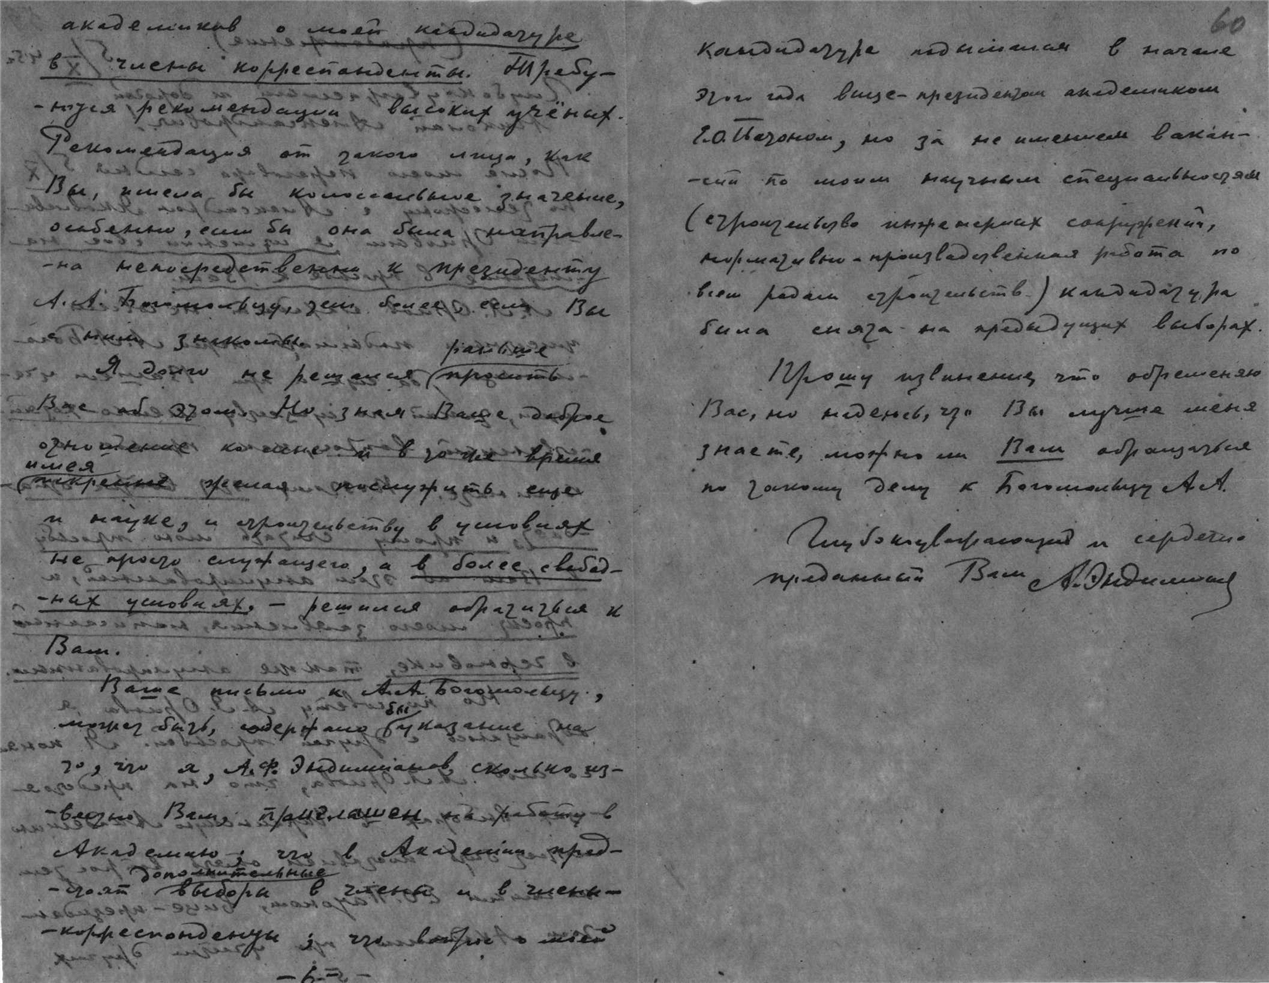 академиков о моей кандидатуре
в члены корреспонденты. Требу-
-ются рекомендации высоких учёных.
Рекомендация от такого лица, как
Вы, имела бы колоссальное значение,
особенно, если бы она была направле-
-на непосредственно к президенту
А. А. Богомольцу, тем более если Вы
с ним знакомы.
раньше
Я долго не решался просить
Вас об этом. Но зная Ваше доброе
отношение ко мне и в то же время
имея
искреннее желая послужить еще
и науке, и строительству в условиях
не просто служащего, а в более свобод-
-ных условиях, – решился обратиться к
Вам.
Ваше письмо к А.А. Богомольцу,
бы
может быть, содержало указание на
то, что я, А.Ф. Эндимионов, сколько из-
-вестно Вам, приглашен на работу в
Академию; что в Академии пред-
дополнительные
-стоят выборы в члены и в члены-
-корреспонденты; что вопрос о моей
60
кандидатура поднималась в начале
этого года вице-президентом академиком
Е.О. Патоном, но за неимением вакан-
-сий по моим научным специальностям
(строительство инженерных сооружений,
нормативно-производственная работа по
всем родам строительств) кандидатура
была снята на предыдущих выборах.
Прошу извинения, что обременяю
Вас, но надеюсь, что Вы лучше меня
знаете, можно ли Вам обращаться
по такому делу к Богомольцу А.А.
Глубокоуважающий и сердечно
преданный Вам А. Эндимионов